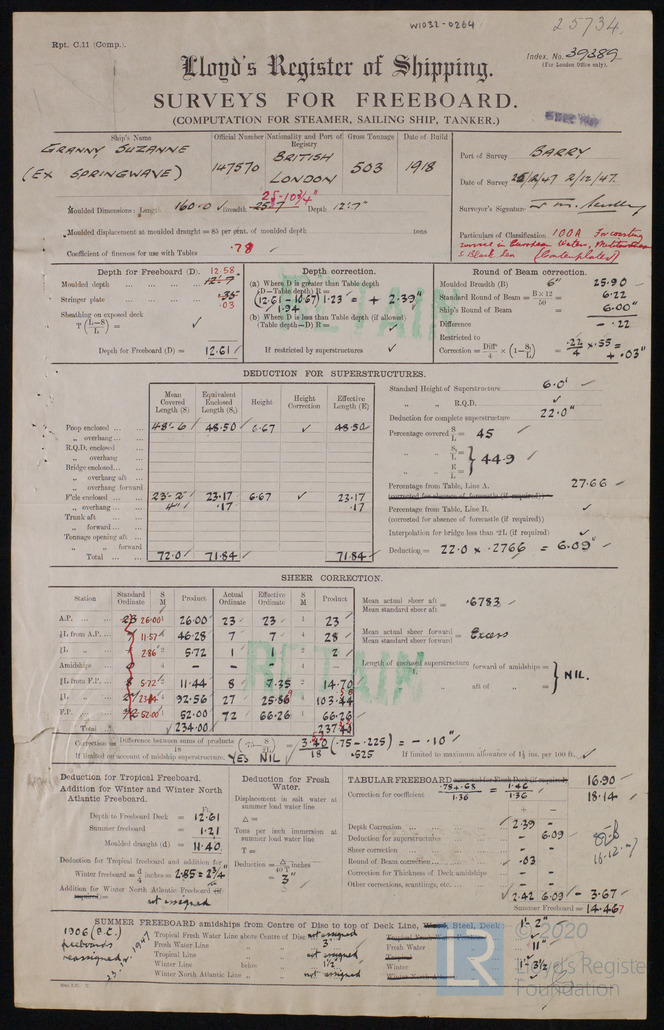 W1032-0264
25734
Rpt. C.11 (Comp.).
Index. No. 39389
(For London Office only).
Lloyd's Register of Shipping.
SURVEYS FOR FREEBOARD.
(COMPUTATION FOR STEAMER, SAILING SHIP, TANKER.)
Ship's Name Official Number Nationality and Port of Registry Gross Tonnage Date of Build
GRANNY SUZANNE
(EX SPRINGWAVE)
147570 BRITISH LONDON 503 1918
Port of Survey BARRY
Date of Survey 2/12/47
Surveyor's Signature
Particulars of Classification 100A For coasting
service in European Waters, Mediterranean
& Black Sea (Contemplated)
25-10 3/4"
Moulded Dimensions: Length 160.0 Breadth 25-7 Depth 12'-7"
Moulded displacement at moulded draught = 85 per cent. of moulded depth tons
Coefficient of fineness for use with Tables .78
Depth for Freeboard (D). 12.58
Moulded depth 12'-7
Stringer plate .35 .03
Sheathing on exposed deck
T (L-S/L) =
Depth for Freeboard (D) = 12.61
Depth correction.
(a) Where D is greater than Table depth
(D—Table depth) R =
(12.61 - 10.67) 1.23 = + 2.39"
1.94
(b) Where D is less than Table depth (if allowed)
(Table depth—D) R =
If restricted by superstructures
Round of Beam correction.
Moulded Breadth (B) 6" 25.90
Standard Round of Beam = B×12/50 = 6.22
Ship's Round of Beam = 6.00"
Difference - .22
Restricted to
Correction = Diff/4 × (1-S/L) = .22/4 × .55 = + .03"
DEDUCTION FOR SUPERSTRUCTURES.
Mean Covered Length (S) Equivalent Enclosed Length (S₁) Height Height Correction Effective Length (E)
Poop enclosed 48'-6 48.50 6.67 ✓ 48.50
„ overhang
R.Q.D. enclosed
„ overhang
Bridge enclosed
„ overhang aft
„ overhang forward
F'cle enclosed 23'-2" 23.17 6.67 ✓ 23.17
„ overhang 4" .17 .17
Trunk aft
„ forward
Tonnage opening aft
„ „ forward
Total 72.0 71.84 71.84
Standard Height of Superstructure 6.0'
„ „ R.Q.D. ✓
Deduction for complete superstructure 22.0"
Percentage covered S/L = 45
„ „ S₁/L =
„ „ E/L = } 44.9
Percentage from Table, Line A. 27.66
(corrected for absence of forecastle (if required))
Percentage from Table, Line B. ✓
(corrected for absence of forecastle (if required))
Interpolation for bridge less than ·2L (if required) ✓
Deduction = 22.0 × .2766 = 6.09"
SHEER CORRECTION.
Station Standard Ordinate S M Product Actual Ordinate Effective Ordinate S M Product
A.P. 26.00 1 26.00 23 23 1 23
⅙L from A.P. 11.57 4 46.28 7 7 4 28
⅓L „ 2.86 2 5.72 1 1 2 2
Amidships 4 - - - 4 -
⅓L from F.P. 5.72 2 11.44 8 7.35 2 14.70
⅙L „ 4 92.56 27 25.86 4 103.44
F.P. 52.00 1 52.00 72 66.26 1 66.26
Total 234.00
Mean actual sheer aft / Mean standard sheer aft = .6783
Mean actual sheer forward / Mean standard sheer forward = Excess
Length of enclosed superstructure forward of amidships =
„ aft of „ = } NIL.
Correction = Difference between sums of products/18 (.75 - S/2L) = 3.40/18 (.75 - .225) = - .10"
.525
If limited on account of midship superstructure. YES NIL If limited to maximum allowance of 1½ ins. per 100 ft. ✓
RETAIN
RETAIN
Deduction for Tropical Freeboard.
Addition for Winter and Winter North
Atlantic Freeboard.
Ft.
Depth to Freeboard Deck = 12.61
Summer freeboard = 1.21
Moulded draught (d) = 11.40
Deduction for Tropical freeboard and addition for
Winter freeboard = d/4 inches = 2.85 = 2¾"
Addition for Winter North Atlantic Freeboard (if
required) = not assigned
Deduction for Fresh
Water.
Displacement in salt water at
summer load water line
Δ =
Tons per inch immersion at
summer load water line
T =
Deduction = Δ/40 T inches
= 3"
TABULAR FREEBOARD corrected for Flush Deck (if required) 16.90
Correction for coefficient .78+.68/1.36 = 1.46/1.36 18.14
+ -
Depth Correction 2.39 -
Deduction for superstructures - 6.09
Sheer correction - -
Round of Beam correction .03 -
Correction for Thickness of Deck amidships - -
Other corrections, scantlings, etc. - -
2.42 6.09 - 3.67
Summer Freeboard = 14.47
SUMMER FREEBOARD amidships from Centre of Disc to top of Deck Line, Wood, Steel, Deck: 1'- 2"
Tropical Fresh Water Line above Centre of Disc not assigned Tropical Fresh Water
Fresh Water Line „ „ 3" Fresh Water 11"
Tropical Line „ „ not assigned Tropical
Winter Line below „ „ 1½" Winter 1'- 3½
Winter North Atlantic Line „ „ not assigned Winter North Atlantic
1906 (B.C.)
freeboards
reassigned
1947
© 2020
LR
Lloyd's Register
Foundation